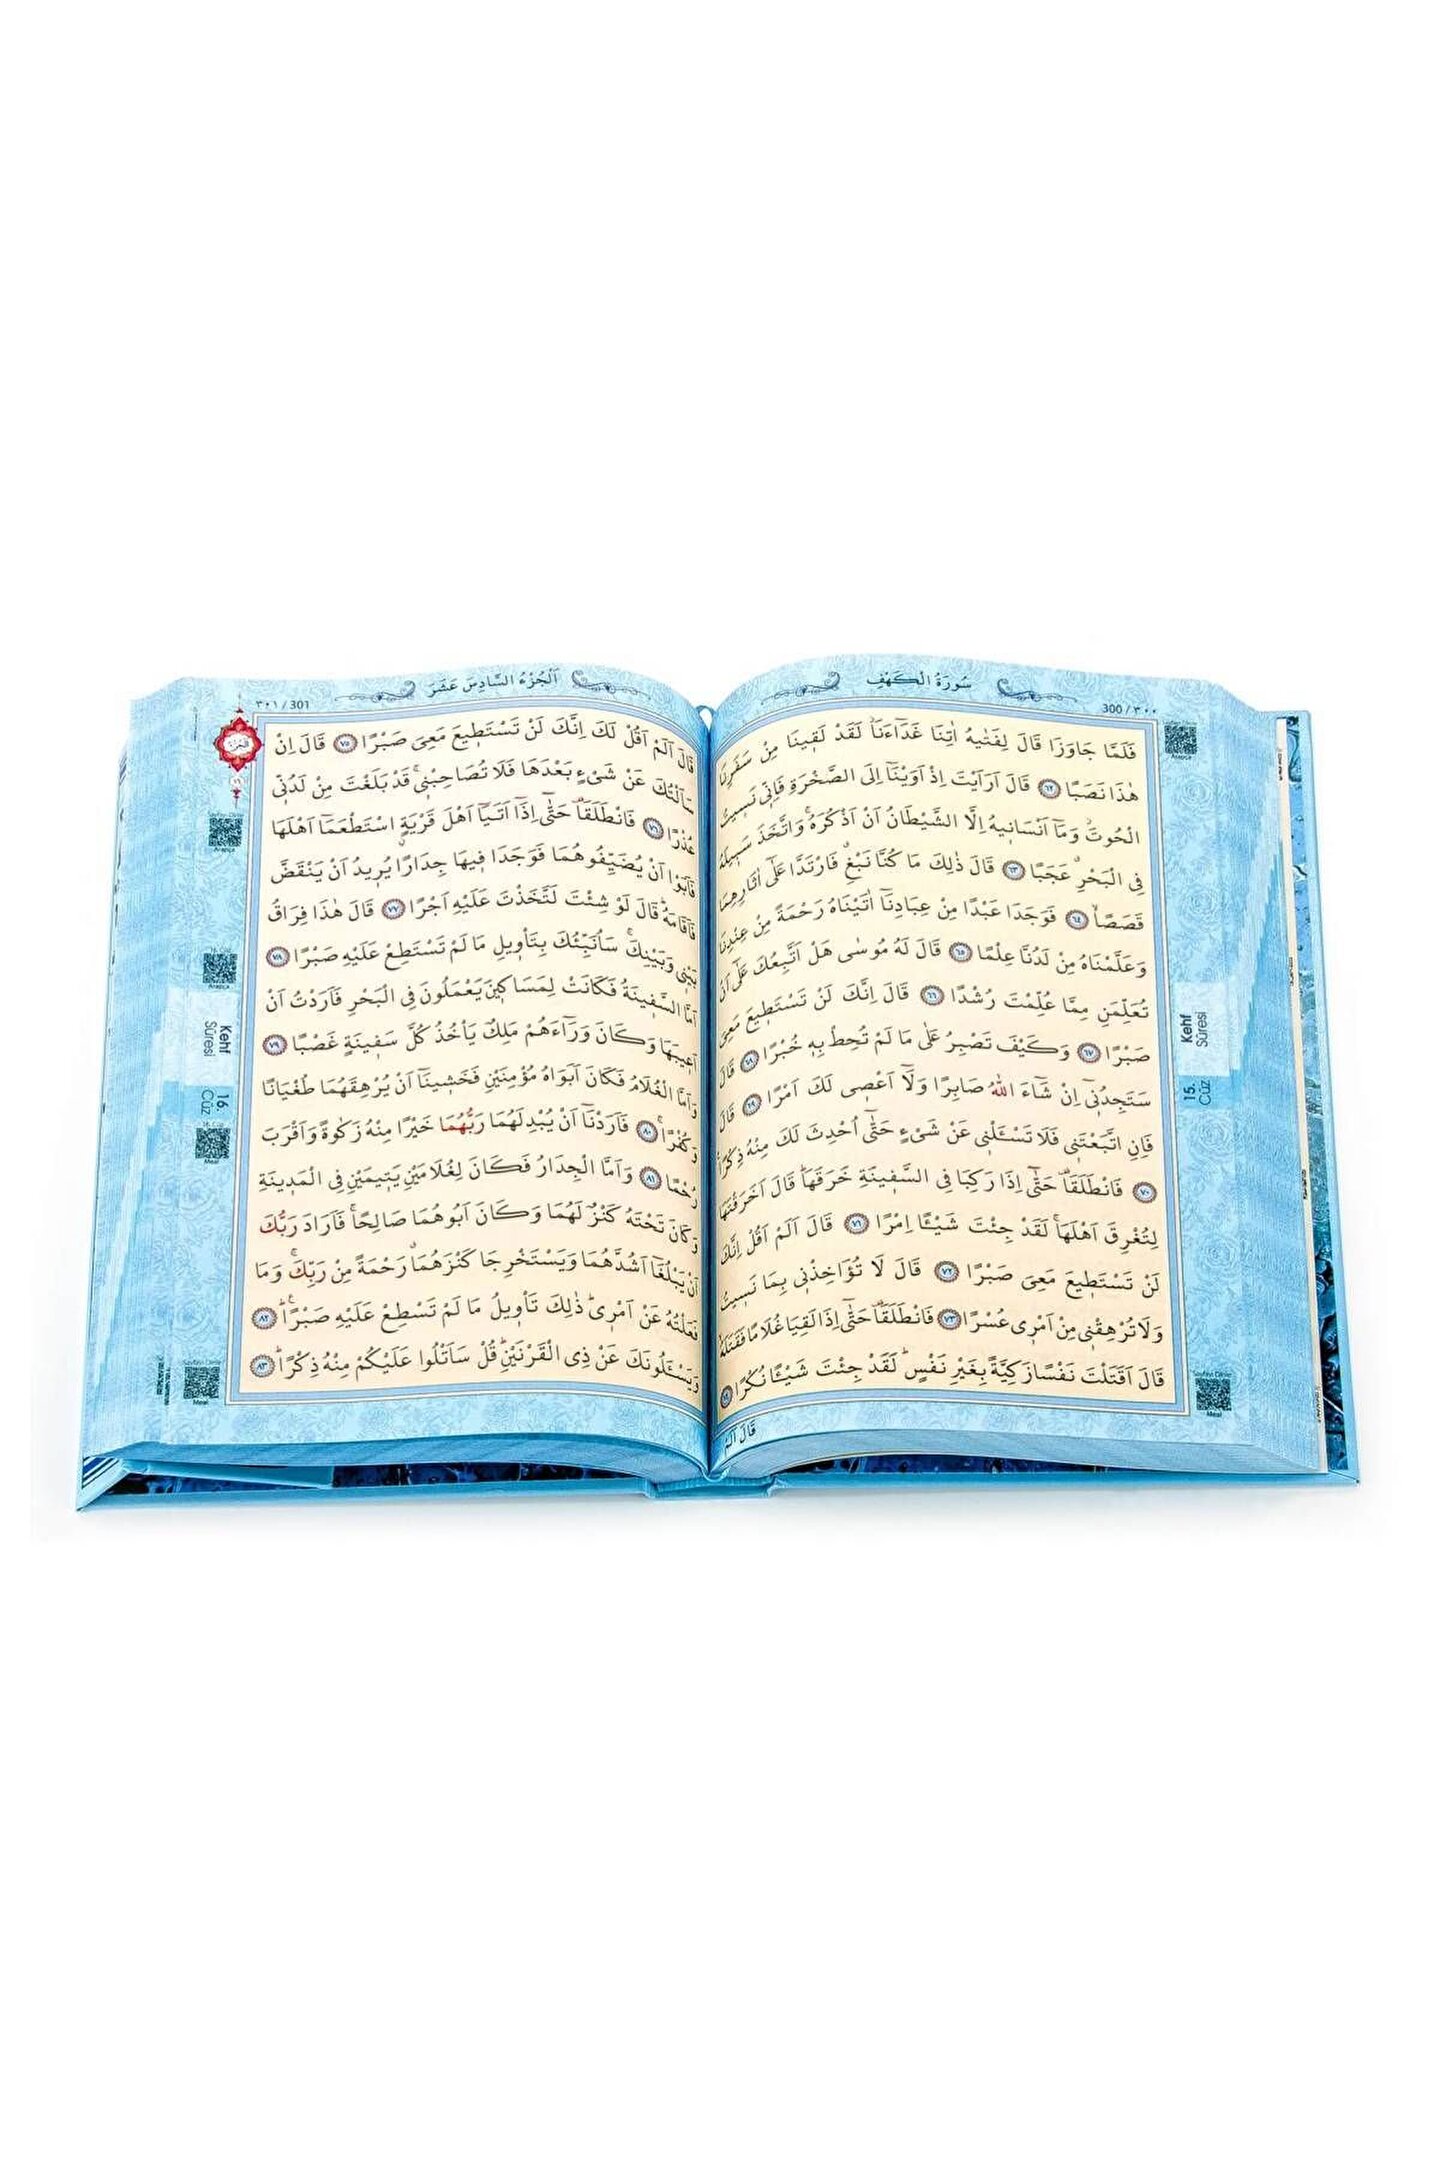 سُورَةُ الْكَهْفِ
300 / ٣٠٠
فَلَمَّا جَاوَزَا قَالَ لِفَتٰيهُ اٰتِنَا غَدَٓاءَنَاۘ لَقَدْ لَقٖينَا مِنْ سَفَرِنَا
هٰذَا نَصَبًا ﴿٦٢﴾ قَالَ اَرَاَيْتَ اِذْ اَوَيْنَٓا اِلَى الصَّخْرَةِ فَاِنّٖى نَسٖيتُ
الْحُوتَۘ وَمَٓا اَنْسَانٖيهُ اِلَّا الشَّيْطَانُ اَنْ اَذْكُرَهُۚ وَاتَّخَذَ سَبٖيلَهُ
فِى الْبَحْرِۗ عَجَبًا ﴿٦٣﴾ قَالَ ذٰلِكَ مَا كُنَّا نَبْغِۗ فَارْتَدَّا عَلٰٓى اٰثَارِهِمَا
قَصَصًاۙ ﴿٦٤﴾ فَوَجَدَا عَبْدًا مِنْ عِبَادِنَٓا اٰتَيْنَاهُ رَحْمَةً مِنْ عِنْدِنَا
وَعَلَّمْنَاهُ مِنْ لَدُنَّا عِلْمًا ﴿٦٥﴾ قَالَ لَهُ مُوسٰى هَلْ اَتَّبِعُكَ عَلٰٓى اَنْ
تُعَلِّمَنِ مِمَّا عُلِّمْتَ رُشْدًا ﴿٦٦﴾ قَالَ اِنَّكَ لَنْ تَسْتَطٖيعَ مَعِىَ
صَبْرًا ﴿٦٧﴾ وَكَيْفَ تَصْبِرُ عَلٰى مَا لَمْ تُحِطْ بِهٖ خُبْرًا ﴿٦٨﴾ قَالَ
سَتَجِدُنٖٓى اِنْ شَٓاءَ اللّٰهُ صَابِرًا وَلَٓا اَعْصٖى لَكَ اَمْرًا ﴿٦٩﴾ قَالَ
فَاِنِ اتَّبَعْتَنٖى فَلَا تَسْـَٔلْنٖى عَنْ شَىْءٍ حَتّٰٓى اُحْدِثَ لَكَ مِنْهُ ذِكْرًا
﴿٧٠﴾ فَانْطَلَقَا۠ حَتّٰٓى اِذَا رَكِبَا فِى السَّفٖينَةِ خَرَقَهَاۜ قَالَ اَخَرَقْتَهَا
لِتُغْرِقَ اَهْلَهَاۚ لَقَدْ جِئْتَ شَيْـًٔا اِمْرًا ﴿٧١﴾ قَالَ اَلَمْ اَقُلْ اِنَّكَ
لَنْ تَسْتَطٖيعَ مَعِىَ صَبْرًا ﴿٧٢﴾ قَالَ لَا تُؤَاخِذْنٖى بِمَا نَسٖيتُ
وَلَا تُرْهِقْنٖى مِنْ اَمْرٖى عُسْرًا ﴿٧٣﴾ فَانْطَلَقَا۠ حَتّٰٓى اِذَا لَقِيَا غُلَامًا فَقَتَلَهُۙ
قَالَ اَقَتَلْتَ نَفْسًا زَكِيَّةً بِغَيْرِ نَفْسٍۜ لَقَدْ جِئْتَ شَيْـًٔا نُكْرًا ﴿٧٤﴾
قَالَ اَلَمْ
Kehf
Sûresi
15.
Cüz
Arapça
Meal
اَلْجُزْءُ السَّادِسَ عَشَرَ
٣٠١ / 301
قَالَ اَلَمْ اَقُلْ لَكَ اِنَّكَ لَنْ تَسْتَطٖيعَ مَعِىَ صَبْرًا ﴿٧٥﴾ قَالَ اِنْ
سَاَلْتُكَ عَنْ شَىْءٍ بَعْدَهَا فَلَا تُصَاحِبْنٖىۚ قَدْ بَلَغْتَ مِنْ لَدُنّٖى
عُذْرًا ﴿٧٦﴾ فَانْطَلَقَا۠ حَتّٰٓى اِذَٓا اَتَيَٓا اَهْلَ قَرْيَةٍۨ اسْتَطْعَمَٓا اَهْلَهَا
فَاَبَوْا اَنْ يُضَيِّفُوهُمَا فَوَجَدَا فٖيهَا جِدَارًا يُرٖيدُ اَنْ يَنْقَضَّ
فَاَقَامَهُۜ قَالَ لَوْ شِئْتَ لَتَّخَذْتَ عَلَيْهِ اَجْرًا ﴿٧٧﴾ قَالَ هٰذَا فِرَاقُ
بَيْنٖى وَبَيْنِكَۚ سَاُنَبِّئُكَ بِتَأْوٖيلِ مَا لَمْ تَسْتَطِعْ عَلَيْهِ صَبْرًا ﴿٧٨﴾
اَمَّا السَّفٖينَةُ فَكَانَتْ لِمَسَاكٖينَ يَعْمَلُونَ فِى الْبَحْرِ فَاَرَدْتُ اَنْ
اَعٖيبَهَا وَكَانَ وَرَٓاءَهُمْ مَلِكٌ يَأْخُذُ كُلَّ سَفٖينَةٍ غَصْبًا ﴿٧٩﴾
وَاَمَّا الْغُلَامُ فَكَانَ اَبَوَاهُ مُؤْمِنَيْنِ فَخَشٖينَٓا اَنْ يُرْهِقَهُمَا طُغْيَانًا
وَكُفْرًاۚ ﴿٨٠﴾ فَاَرَدْنَٓا اَنْ يُبْدِلَهُمَا رَبُّهُمَا خَيْرًا مِنْهُ زَكٰوةً وَاَقْرَبَ
رُحْمًا ﴿٨١﴾ وَاَمَّا الْجِدَارُ فَكَانَ لِغُلَامَيْنِ يَتٖيمَيْنِ فِى الْمَدٖينَةِ
وَكَانَ تَحْتَهُ كَنْزٌ لَهُمَا وَكَانَ اَبُوهُمَا صَالِحًاۚ فَاَرَادَ رَبُّكَ
اَنْ يَبْلُغَٓا اَشُدَّهُمَا وَيَسْتَخْرِجَا كَنْزَهُمَاۗ رَحْمَةً مِنْ رَبِّكَۚ وَمَا
فَعَلْتُهُ عَنْ اَمْرٖىۜ ذٰلِكَ تَأْوٖيلُ مَا لَمْ تَسْطِعْ عَلَيْهِ صَبْرًاۜ ﴿٨٢﴾
وَيَسْـَٔلُونَكَ عَنْ ذِى الْقَرْنَيْنِۜ قُلْ سَاَتْلُوا عَلَيْكُمْ مِنْهُ ذِكْرًاۜ ﴿٨٣﴾
Arapça
Kehf
Sûresi
16.
Cüz
Meal